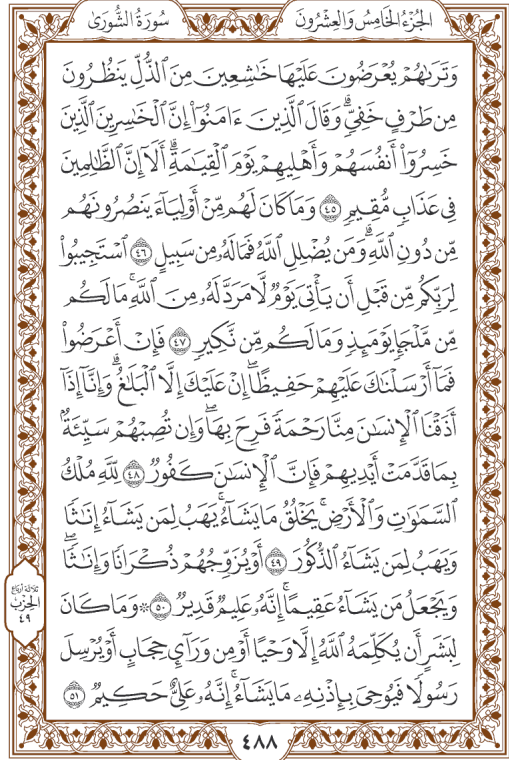 الجُزْءُ الخَامِسُ وَالعِشْرُونَ
سُورَةُ الشُّورَىٰ
وَتَرَىٰهُمْ يُعْرَضُونَ عَلَيْهَا خَٰشِعِينَ مِنَ ٱلذُّلِّ يَنظُرُونَ
مِن طَرْفٍ خَفِيٍّۗ وَقَالَ ٱلَّذِينَ ءَامَنُوٓا۟ إِنَّ ٱلْخَٰسِرِينَ ٱلَّذِينَ
خَسِرُوٓا۟ أَنفُسَهُمْ وَأَهْلِيهِمْ يَوْمَ ٱلْقِيَٰمَةِۗ أَلَآ إِنَّ ٱلظَّٰلِمِينَ
فِى عَذَابٍ مُّقِيمٍ ٤٥ وَمَا كَانَ لَهُم مِّنْ أَوْلِيَآءَ يَنصُرُونَهُم
مِّن دُونِ ٱللَّهِۗ وَمَن يُضْلِلِ ٱللَّهُ فَمَا لَهُۥ مِن سَبِيلٍ ٤٦ ٱسْتَجِيبُوا۟
لِرَبِّكُم مِّن قَبْلِ أَن يَأْتِىَ يَوْمٌ لَّا مَرَدَّ لَهُۥ مِنَ ٱللَّهِۚ مَا لَكُم
مِّن مَّلْجَإٍ يَوْمَئِذٍ وَمَا لَكُم مِّن نَّكِيرٍ ٤٧ فَإِنْ أَعْرَضُوا۟
فَمَآ أَرْسَلْنَٰكَ عَلَيْهِمْ حَفِيظًاۖ إِنْ عَلَيْكَ إِلَّا ٱلْبَلَٰغُۗ وَإِنَّآ إِذَآ
أَذَقْنَا ٱلْإِنسَٰنَ مِنَّا رَحْمَةً فَرِحَ بِهَاۖ وَإِن تُصِبْهُمْ سَيِّئَةٌۢ
بِمَا قَدَّمَتْ أَيْدِيهِمْ فَإِنَّ ٱلْإِنسَٰنَ كَفُورٌ ٤٨ لِّلَّهِ مُلْكُ
ٱلسَّمَٰوَٰتِ وَٱلْأَرْضِۚ يَخْلُقُ مَا يَشَآءُۚ يَهَبُ لِمَن يَشَآءُ إِنَٰثًا
وَيَهَبُ لِمَن يَشَآءُ ٱلذُّكُورَ ٤٩ أَوْ يُزَوِّجُهُمْ ذُكْرَانًا وَإِنَٰثًاۖ
وَيَجْعَلُ مَن يَشَآءُ عَقِيمًاۚ إِنَّهُۥ عَلِيمٌ قَدِيرٌ ٥٠ ۞ وَمَا كَانَ
لِبَشَرٍ أَن يُكَلِّمَهُ ٱللَّهُ إِلَّا وَحْيًا أَوْ مِن وَرَآئِ حِجَابٍ أَوْ يُرْسِلَ
رَسُولًا فَيُوحِىَ بِإِذْنِهِۦ مَا يَشَآءُۚ إِنَّهُۥ عَلِىٌّ حَكِيمٌ ٥١
ثلاثة أرباع
الحزب
٤٩
٤٨٨